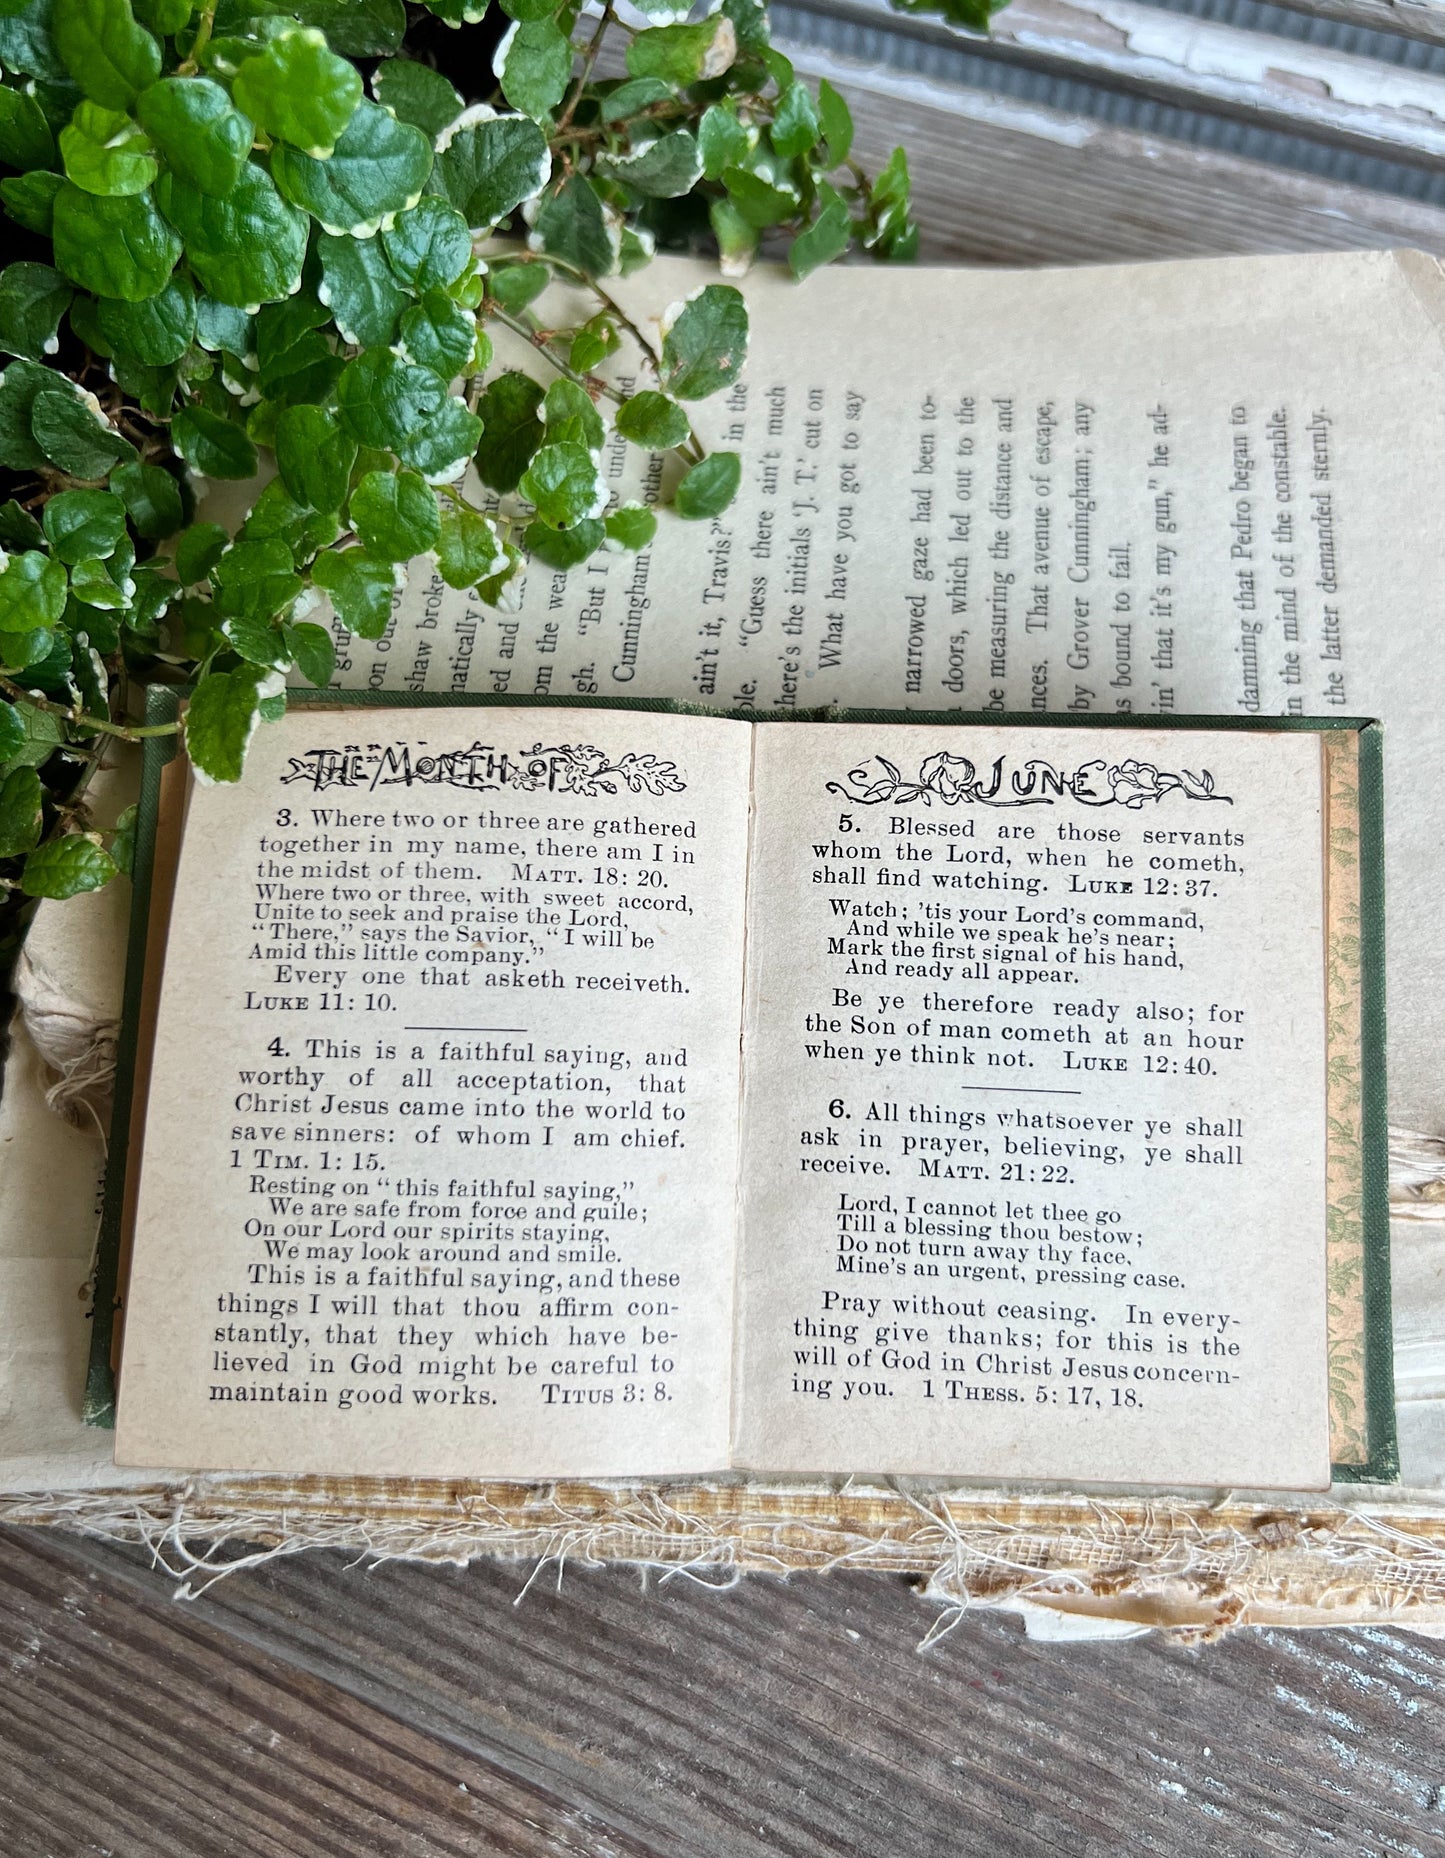 THE MONTH OF
3. Where two or three are gathered
together in my name, there am I in
the midst of them. MATT. 18: 20.
Where two or three, with sweet accord,
Unite to seek and praise the Lord,
“There,” says the Savior, “I will be
Amid this little company.”
Every one that asketh receiveth.
LUKE 11: 10.
4. This is a faithful saying, and
worthy of all acceptation, that
Christ Jesus came into the world to
save sinners: of whom I am chief.
1 TIM. 1: 15.
Resting on “this faithful saying,”
We are safe from force and guile;
On our Lord our spirits staying,
We may look around and smile.
This is a faithful saying, and these
things I will that thou affirm con-
stantly, that they which have be-
lieved in God might be careful to
maintain good works. TITUS 3: 8.
JUNE
5. Blessed are those servants
whom the Lord, when he cometh,
shall find watching. LUKE 12: 37.
Watch; ’tis your Lord’s command,
And while we speak he’s near;
Mark the first signal of his hand,
And ready all appear.
Be ye therefore ready also; for
the Son of man cometh at an hour
when ye think not. LUKE 12: 40.
6. All things whatsoever ye shall
ask in prayer, believing, ye shall
receive. MATT. 21: 22.
Lord, I cannot let thee go
Till a blessing thou bestow;
Do not turn away thy face,
Mine’s an urgent, pressing case.
Pray without ceasing. In every-
thing give thanks; for this is the
will of God in Christ Jesus concern-
ing you. 1 THESS. 5: 17, 18.
on out of
shaw broke
matically
ed and
om the wea
gh. “But I
Cunningham other
ain’t it, Travis?” in the
“Guess there ain’t much
there’s the initials ‘J. T.’ cut on
What have you got to say
narrowed gaze had been to-
doors, which led out to the
be measuring the distance and
nces. That avenue of escape,
by Grover Cunningham; any
s bound to fail.
in’ that it’s my gun,” he ad-
damning that Pedro began to
in the mind of the constable.
the latter demanded sternly.